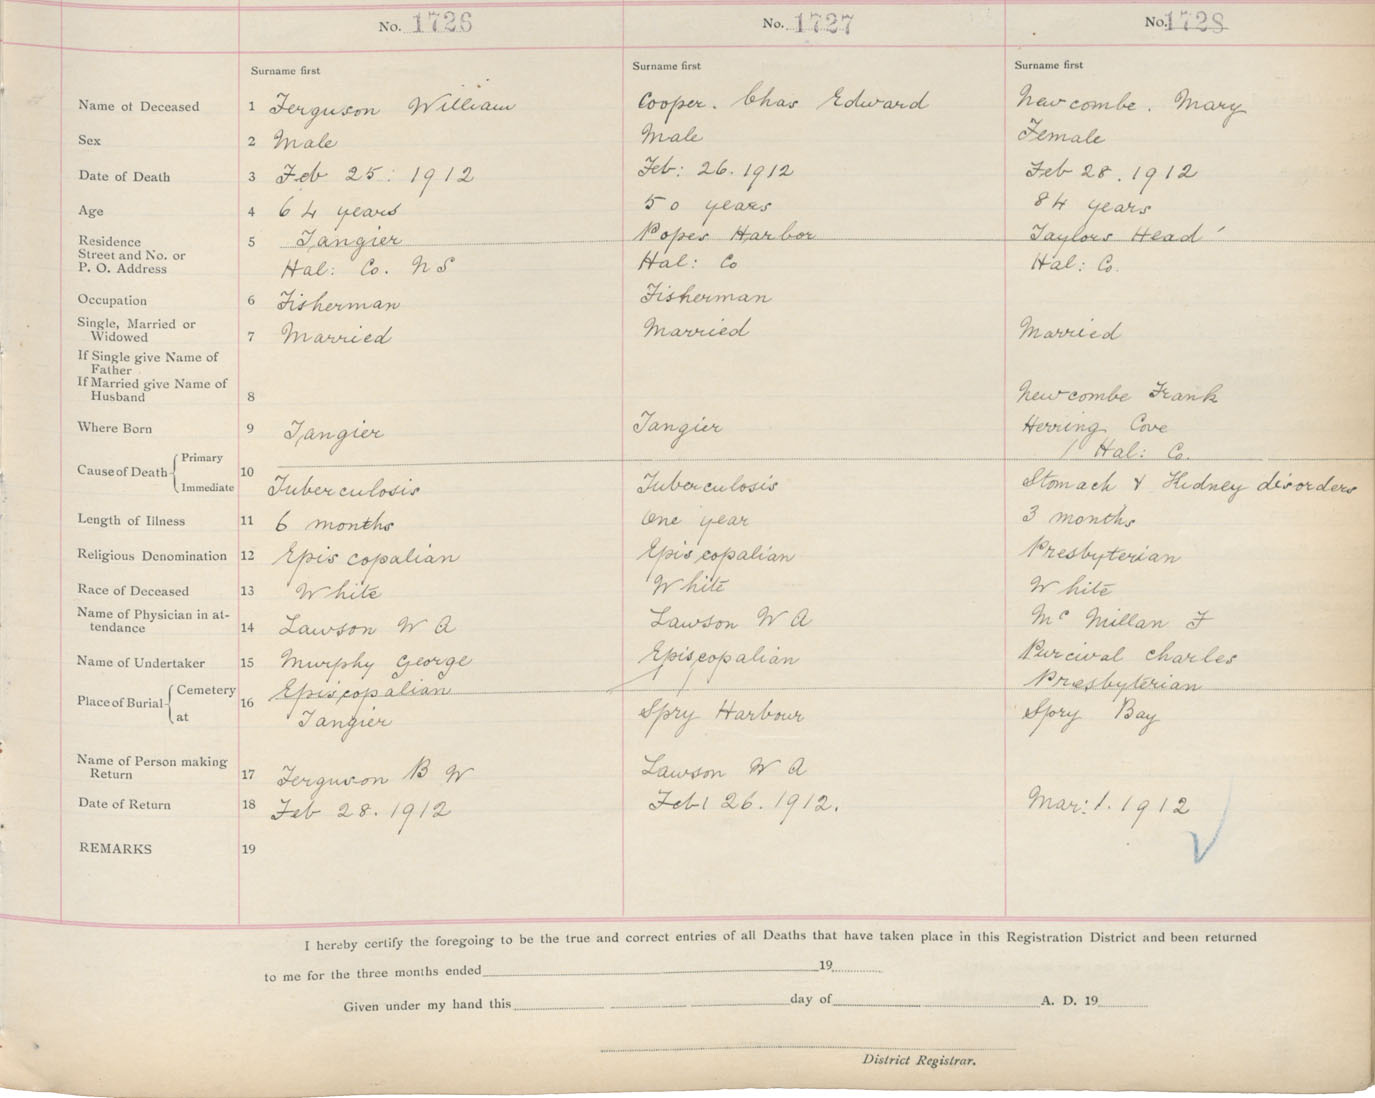 No. 1726 No. 1727 No. 1728
Surname first Surname first Surname first
Name of Deceased 1 Ferguson William Cooper. Chas Edward Newcombe. Mary
Sex 2 Male Male Female
Date of Death 3 Feb 25: 1912 Feb: 26. 1912 Feb 28. 1912
Age 4 64 years 50 years 84 years
Residence 5 Tangier Popes Harbor Taylors Head
Street and No. or
P. O. Address Hal: Co. N S Hal: Co Hal: Co.
Occupation 6 Fisherman Fisherman
Single, Married or
Widowed 7 Married Married Married
If Single give Name of
Father
If Married give Name of
Husband 8 Newcombe Frank
Where Born 9 Tangier Tangier Herring Cove
Hal: Co.
Cause of Death Primary 10
Immediate Tuberculosis Tuberculosis Stomach & Kidney disorders
Length of Illness 11 6 months One year 3 months
Religious Denomination 12 Episcopalian Episcopalian Presbyterian
Race of Deceased 13 White White White
Name of Physician in at-
tendance 14 Lawson W A Lawson W A Mc Millan F
Name of Undertaker 15 Murphy George Episcopalian Purcival Charles
Place of Burial Cemetery 16 Episcopalian Presbyterian
at Tangier Spry Harbour Spry Bay
Name of Person making
Return 17 Ferguson B W Lawson W A
Date of Return 18 Feb 28. 1912 Feb 26. 1912. Mar: 1. 1912
REMARKS 19
I hereby certify the foregoing to be the true and correct entries of all Deaths that have taken place in this Registration District and been returned
to me for the three months ended 19
Given under my hand this day of A. D. 19
District Registrar.